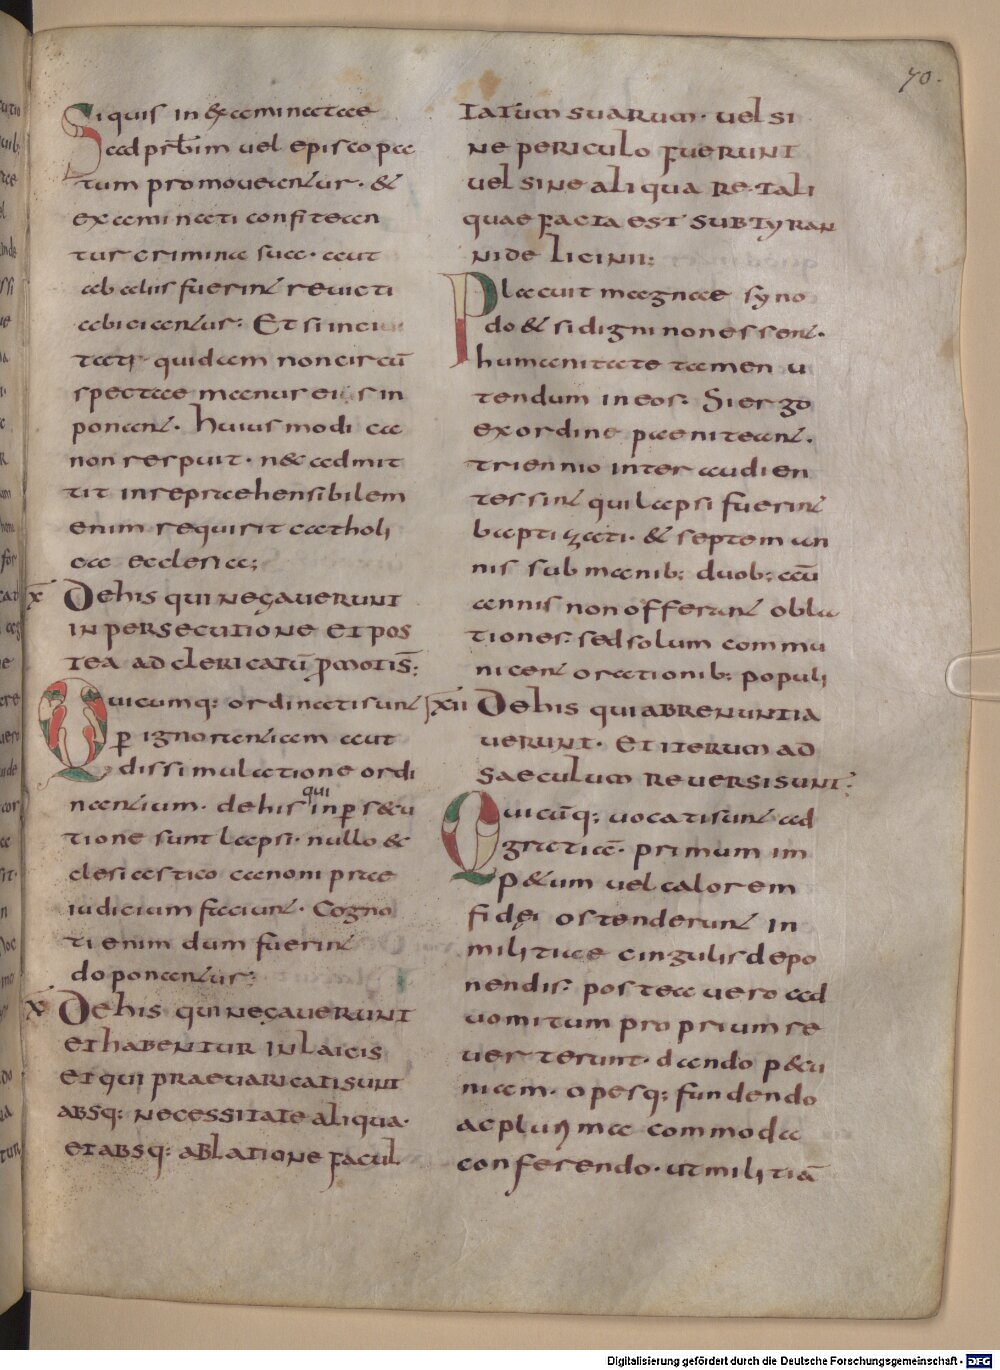 70.
Siquis inexaminatae
ad prƀim vel episcopa
tum promoveantur. &
examinati confitean
tur crimina sua. aut
ab aliis fuerint revicti
abiciantur: Et si inci
tati quidam noncircū
spectae manus eius in
ponant. huiusmodi ea
non respuit. nec admit
tit inrepraehensibilem
enim requirit catholi
ca ecclesia;
x Dehis qui negaverunt
inpersecutione et pos
tea ad clericatū pmotis;
Quicumq: ordinati sunt
p ignorantiam aut
dissimulatione ordi
nantium. dehis qui inpsecu
tione sunt lapsi. nullo ec
clesiastico canoni prae
iudicium faciunt. Cogno
ti enim dum fuerint
doponantur;
Dehis qui negaverunt
et habentur in laicis
et qui praevaricati sunt
absq: necessitate aliqua.
et absq: ablatione facul
tatum suarum. vel si
ne periculo fuerunt
vel sine aliqua re. tali
quae facta est sub tyran
nide licinii:
Placuit magnae syno
do & si digni non essent.
humanitate tamen u
tendum in eos. Si ergo
ex ordine paeniteant.
triennio inter audien
tes sint qui lapsi fuerint
baptizati. & septem an
nis sub manib; duob; aū
annis non offerant obla
tiones. sed solum commu
nicent orationib; populi
xii Dehis qui abrenuntia
verunt. et iterum ad
saeculum reversi sunt:
Quicūq; vocati sunt ad
gratiā. primum im
p&um vel calorem
fidei ostenderunt in
militiae cingulis depo
nendis. postea vero ad
vomitum proprium re
verterunt. dando pecu
niam. opesq; fundendo
ac plurima commoda
conferendo. ut militiā
Digitalisierung gefördert durch die Deutsche Forschungsgemeinschaft - DFG